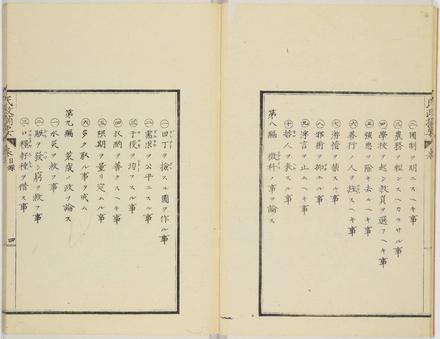 ㊁國制ヲ明ニスヘキ事
㊂農務ヲ輕ンスヘカラサル事
㊃學校ヲ起シ教員ヲ選フヘキ事
㊄強悪ヲ除キ去ルヘキ事
㊅善行ノ人ヲ ヘキ事
㊆游惰ヲ禁スル事
㊇邪術ヲ抑エル事
㊈浮言ヲ止ムヘキ事
㊉哲人ヲ表スル事
第八編 徴科ノ事ヲ論ス
㊀田丁ヲ檢シ圖ヲ作ル事
㊁需求ヲ公平ニスル事
㊂于役ヲ均フスル事
㊃收納ヲ善クスヘキ事
㊄限期ヲ量リ定ムル事
㊅多ク取ル事ヲ戒ム
第九編 荒歳ノ政ヲ論ス
㊀水災ヲ救フ事
㊁賑ヲ發シ窮ヲ救フ事
㊂口糧籽種ヲ借ス事
四